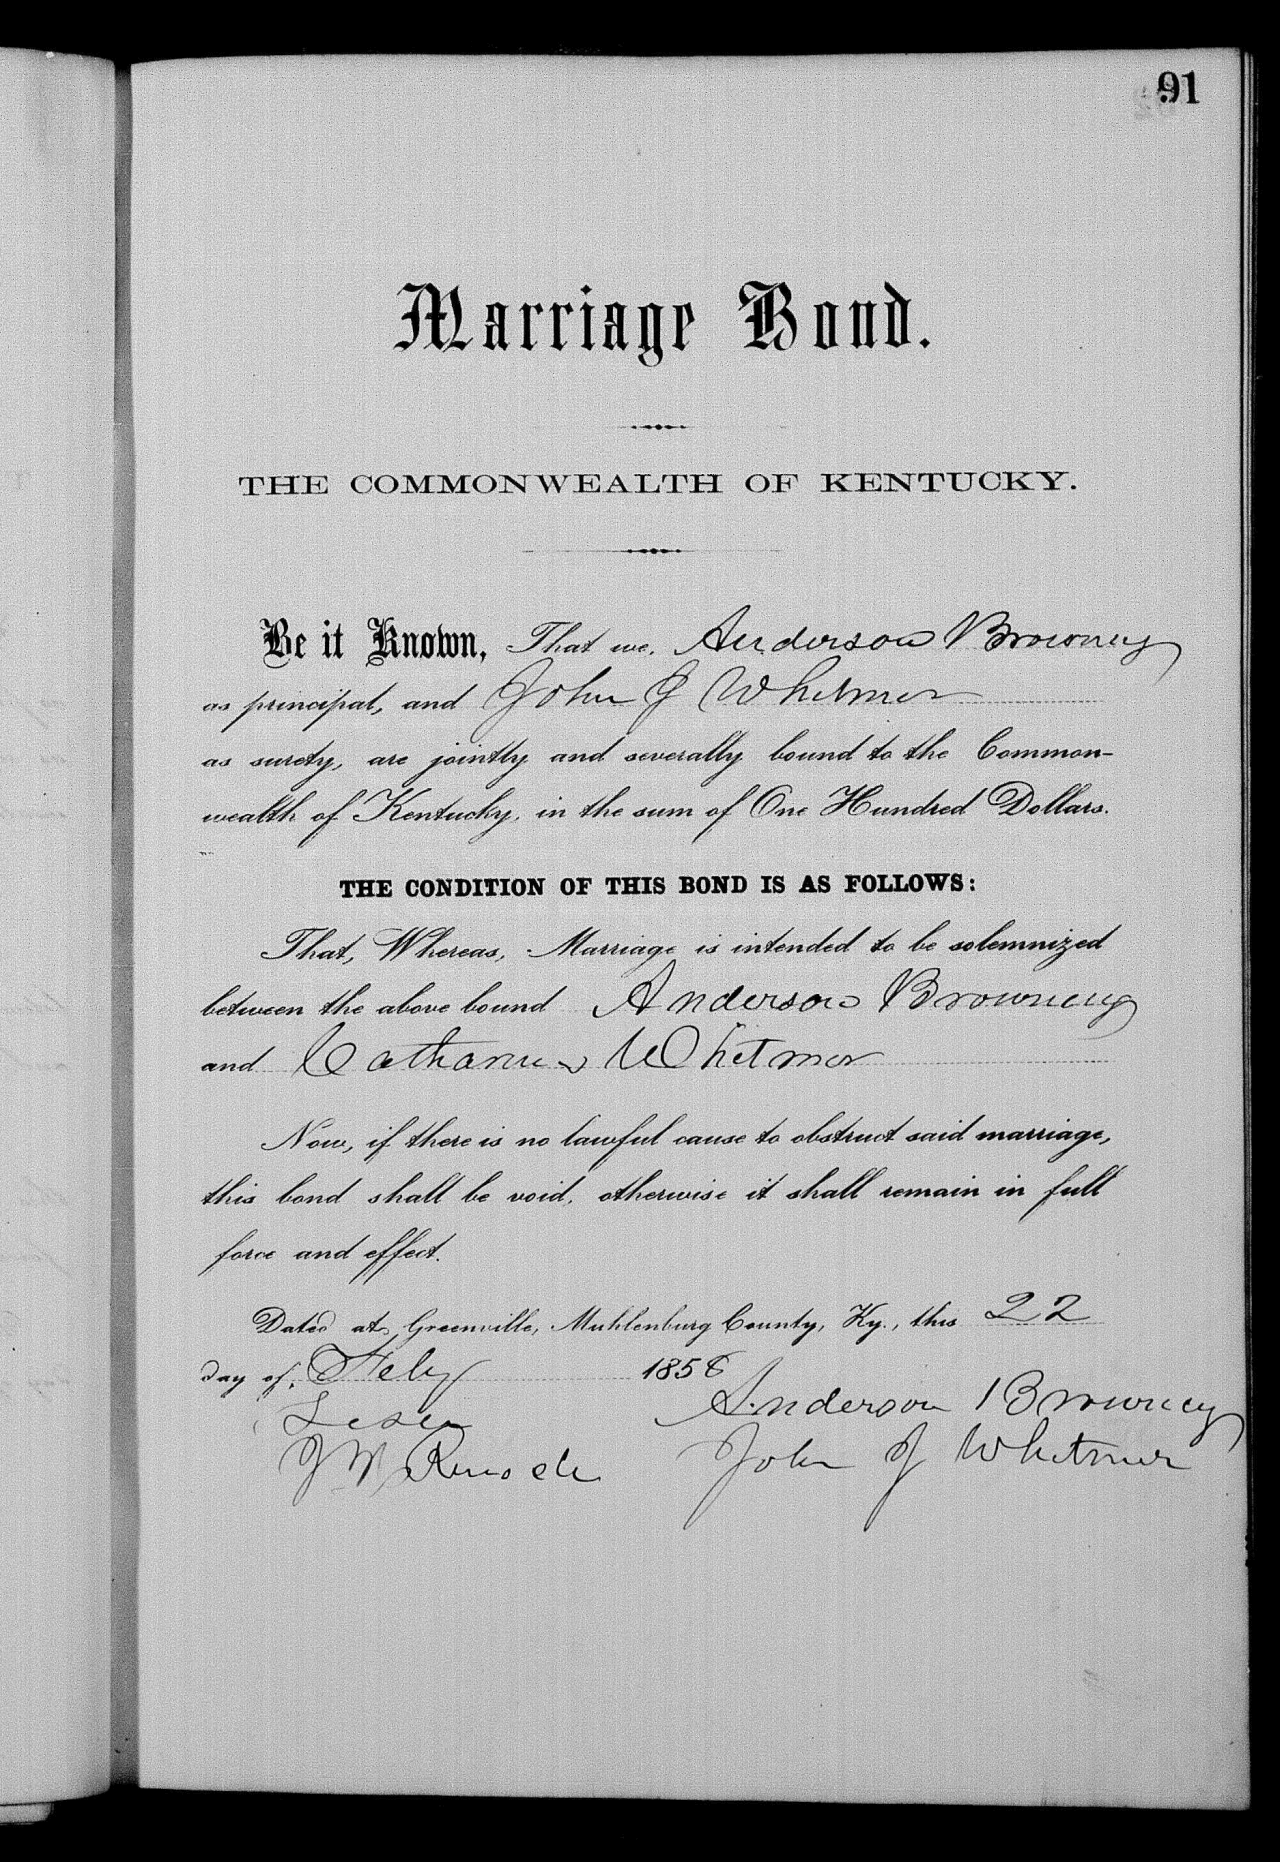 91
Marriage Bond.
THE COMMONWEALTH OF KENTUCKY.
Be it Known, That we, Anderson Browney
as principal, and John J Whitmer
as surety, are jointly and severally bound to the Common-
wealth of Kentucky, in the sum of One Hundred Dollars.
THE CONDITION OF THIS BOND IS AS FOLLOWS:
That, Whereas, Marriage is intended to be solemnized
between the above bound Anderson Browning
and Catharine Whitmer
Now, if there is no lawful cause to obstruct said marriage,
this bond shall be void, otherwise it shall remain in full
force and effect.
Dated at Greenville, Muhlenburg County, Ky., this 22
day of Feby 1856
Anderson Browney
John J Whitmer
J W